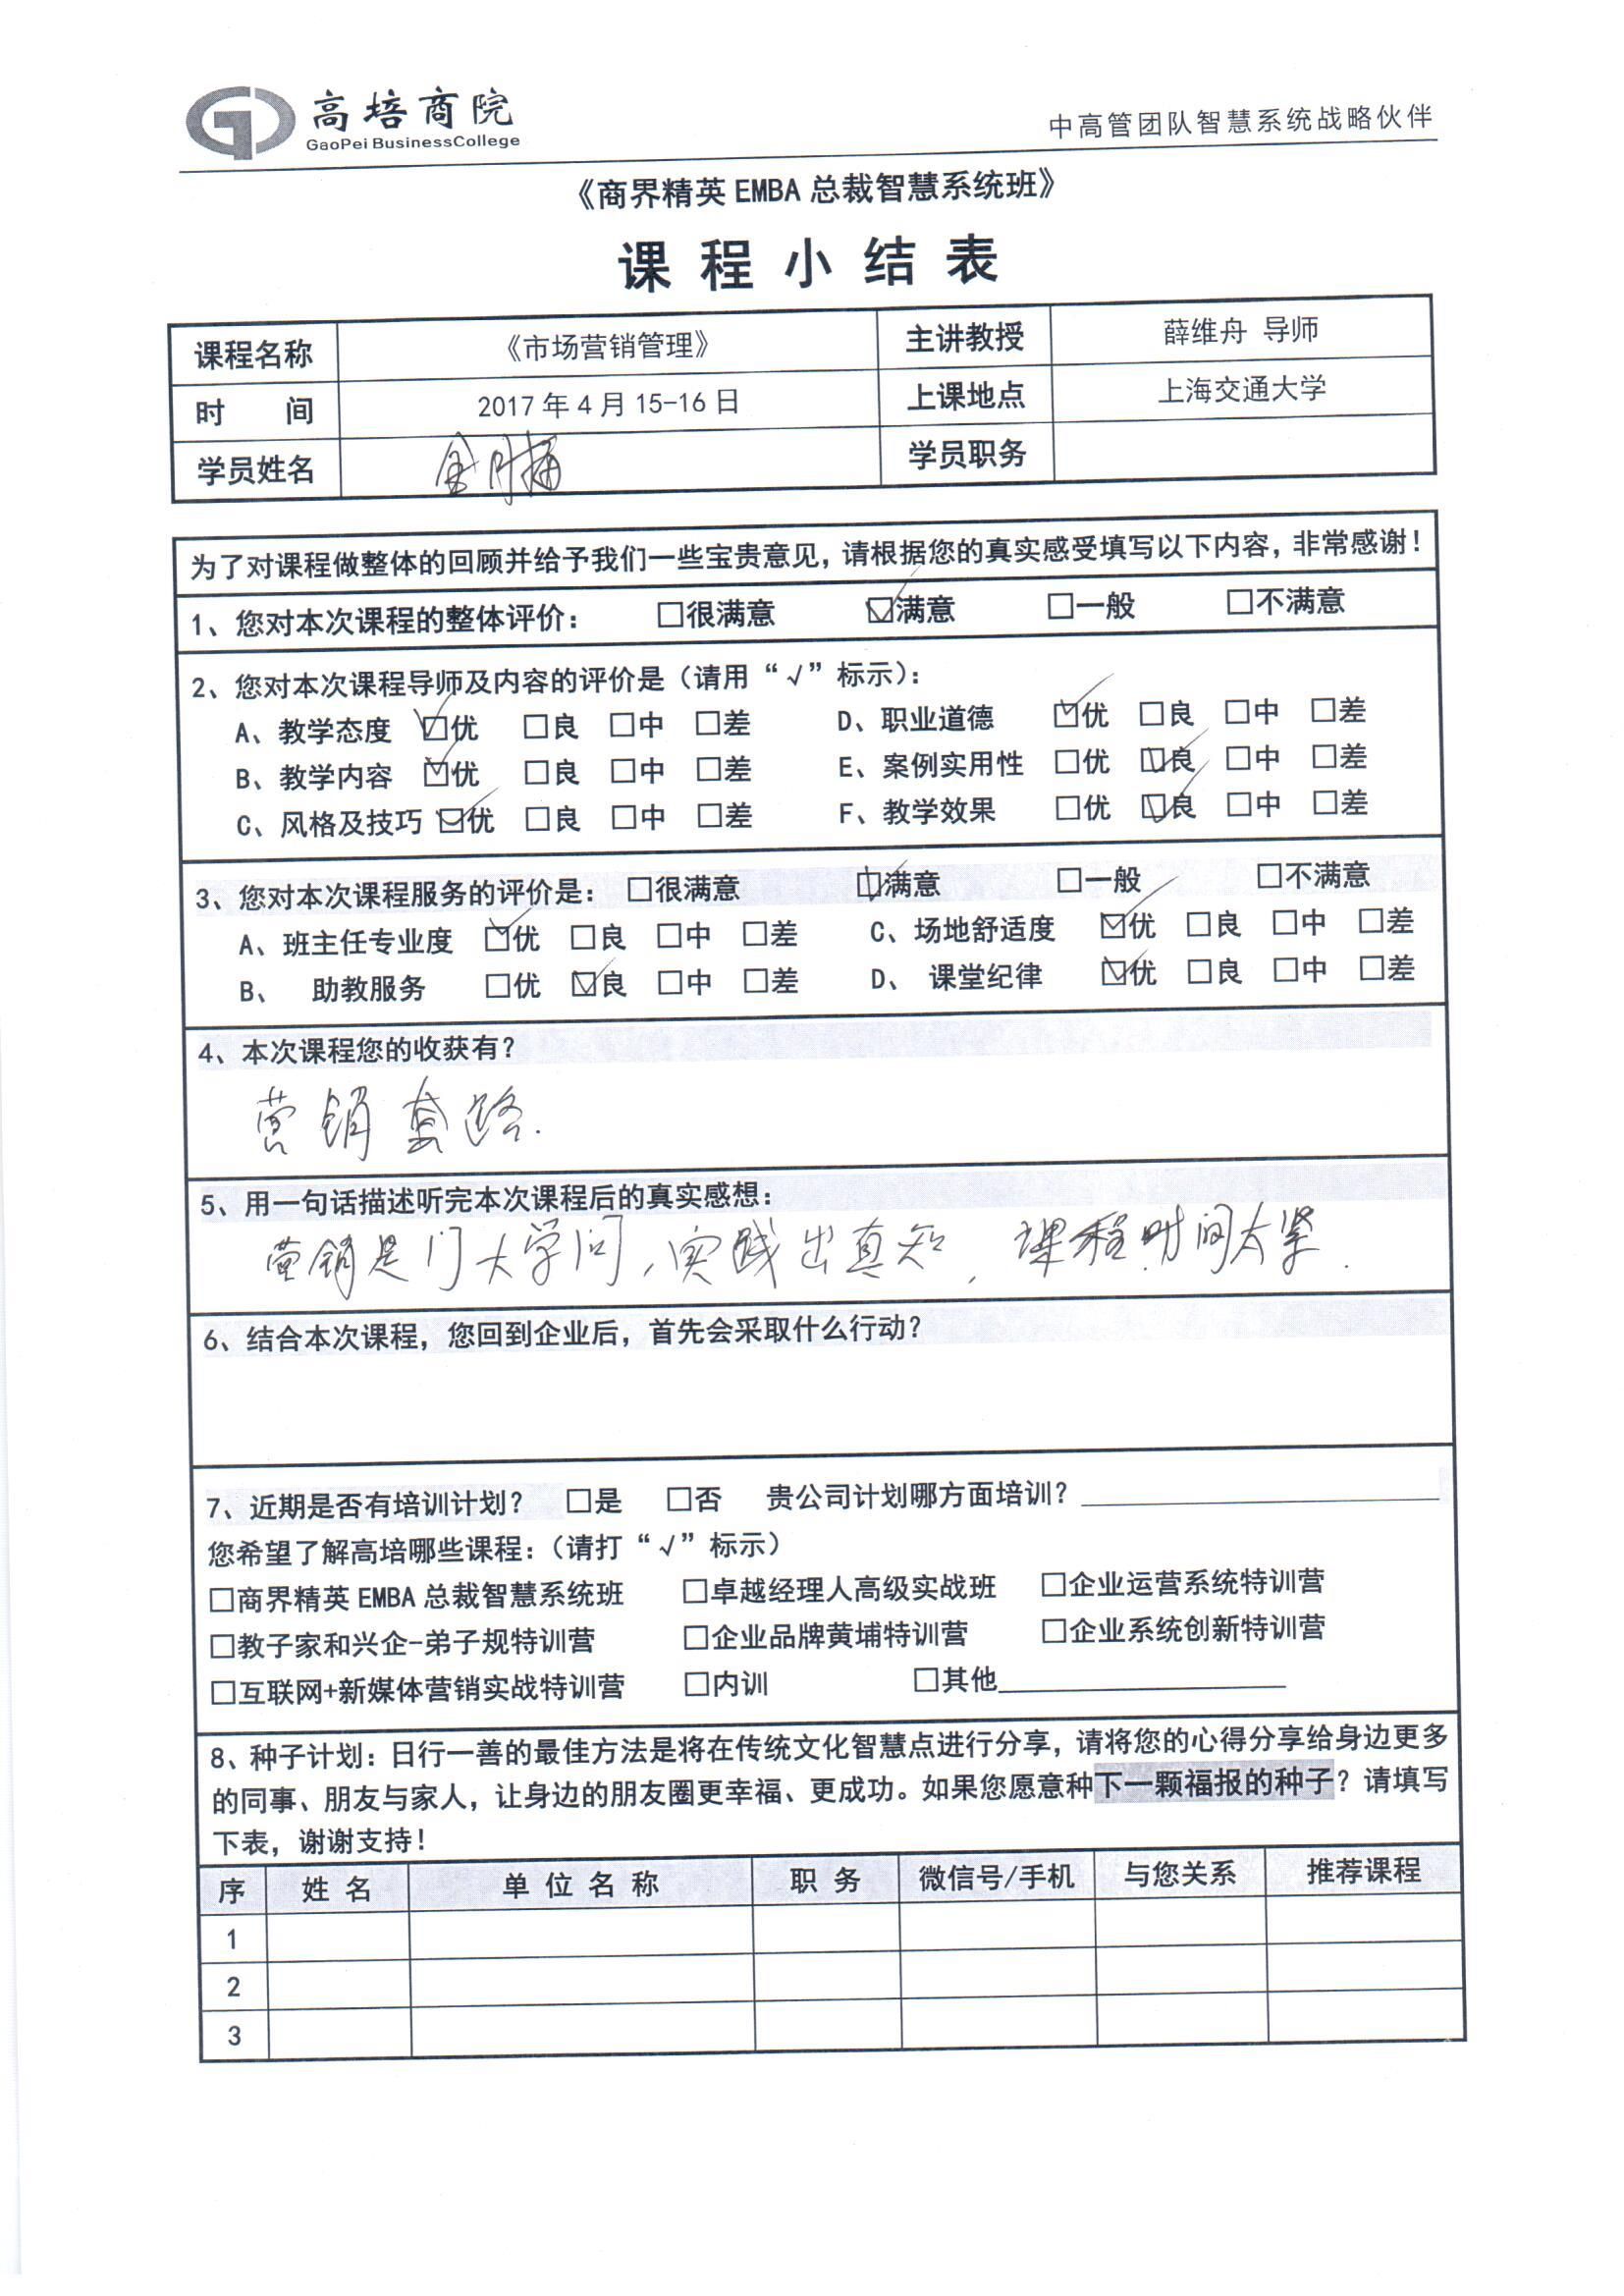 高培商院
GaoPei BusinessCollege
中高管团队智慧系统战略伙伴
《商界精英 EMBA 总裁智慧系统班》
课 程 小 结 表
课程名称 《市场营销管理》 主讲教授 薛维舟 导师
时 间 2017 年 4 月 15-16 日 上课地点 上海交通大学
学员姓名 金 学员职务
为了对课程做整体的回顾并给予我们一些宝贵意见，请根据您的真实感受填写以下内容，非常感谢！
1、您对本次课程的整体评价： □很满意 ☑满意 □一般 □不满意
2、您对本次课程导师及内容的评价是（请用“√”标示）：
A、教学态度 ☑优 □良 □中 □差 D、职业道德 ☑优 □良 □中 □差
B、教学内容 ☑优 □良 □中 □差 E、案例实用性 □优 ☑良 □中 □差
C、风格及技巧 ☑优 □良 □中 □差 F、教学效果 □优 ☑良 □中 □差
3、您对本次课程服务的评价是： □很满意 ☑满意 □一般 □不满意
A、班主任专业度 ☑优 □良 □中 □差 C、场地舒适度 ☑优 □良 □中 □差
B、 助教服务 □优 ☑良 □中 □差 D、 课堂纪律 ☑优 □良 □中 □差
4、本次课程您的收获有？
营销套路.
5、用一句话描述听完本次课程后的真实感想：
营销是门大学问，实践出真知，课程时间太紧.
6、结合本次课程，您回到企业后，首先会采取什么行动？
7、近期是否有培训计划？ □是 □否 贵公司计划哪方面培训？
您希望了解高培哪些课程：（请打“√”标示）
□商界精英 EMBA 总裁智慧系统班 □卓越经理人高级实战班 □企业运营系统特训营
□教子家和兴企-弟子规特训营 □企业品牌黄埔特训营 □企业系统创新特训营
□互联网+新媒体营销实战特训营 □内训 □其他
8、种子计划：日行一善的最佳方法是将在传统文化智慧点进行分享，请将您的心得分享给身边更多
的同事、朋友与家人，让身边的朋友圈更幸福、更成功。如果您愿意种下一颗福报的种子？请填写
下表，谢谢支持！
序 姓 名 单 位 名 称 职 务 微信号/手机 与您关系 推荐课程
1
2
3